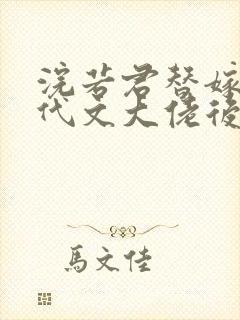 浣若君替嫁
代文大佬後
馬文佳